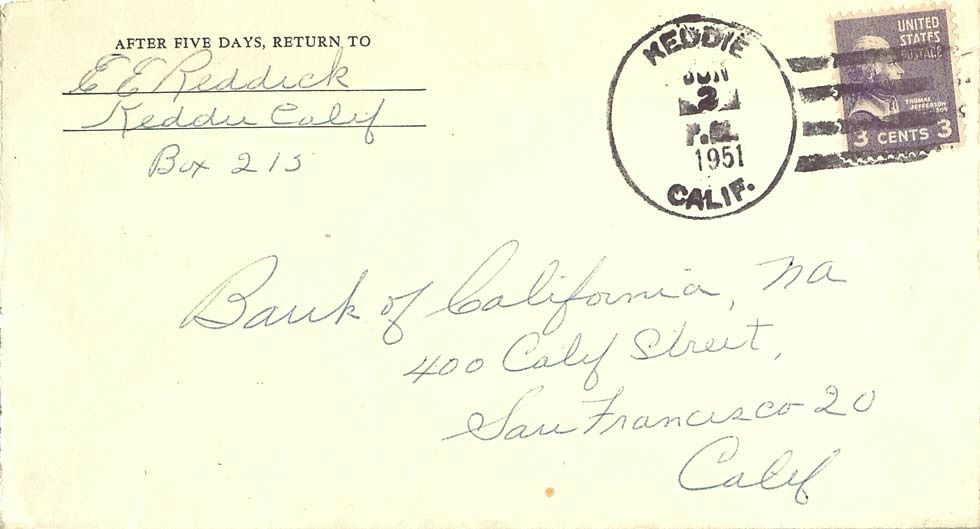 AFTER FIVE DAYS, RETURN TO
E E Reddick
Keddie Calif
Box 215
KEDDIE
JUN
2
P.M.
1951
CALIF.
UNITED
STATES
POSTAGE
THOMAS
JEFFERSON
3 CENTS 3
Bank of California, NA
400 Calif Street,
San Francisco 20
Calif